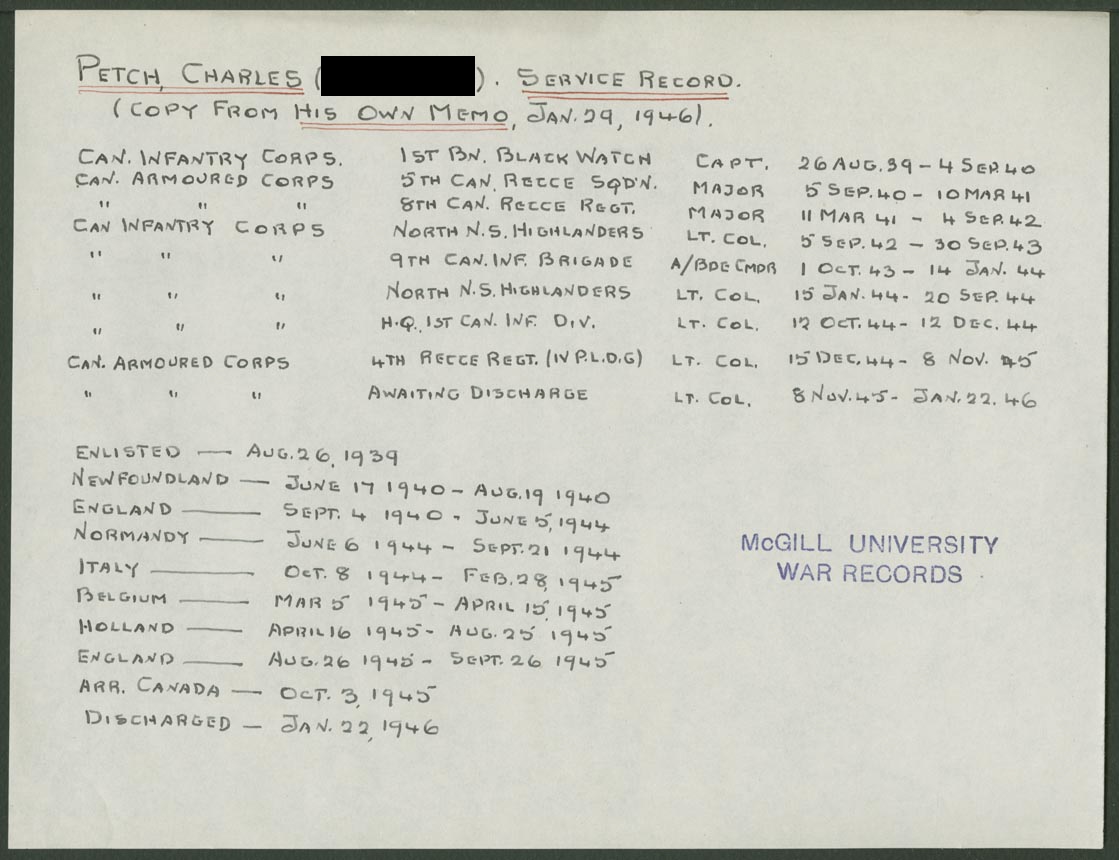 PETCH, CHARLES ( ). SERVICE RECORD.
(COPY FROM HIS OWN MEMO, JAN. 29, 1946).
CAN. INFANTRY CORPS. 1ST BN. BLACK WATCH CAPT. 26 AUG. 39 - 4 SEP. 40
CAN. ARMOURED CORPS 5TH CAN. RECCE SQD'N. MAJOR 5 SEP. 40 - 10 MAR 41
" " " 8TH CAN. RECCE REGT. MAJOR 11 MAR 41 - 4 SEP. 42
CAN INFANTRY CORPS NORTH N.S. HIGHLANDERS LT. COL. 5 SEP. 42 - 30 SEP. 43
" " " 9TH CAN. INF. BRIGADE A/BDE CMDR 1 OCT. 43 - 14 JAN. 44
" " " NORTH N.S. HIGHLANDERS LT. COL. 15 JAN. 44 - 20 SEP. 44
" " " H.Q. 1ST CAN. INF. DIV. LT. COL. 12 OCT. 44 - 12 DEC. 44
CAN. ARMOURED CORPS 4TH RECCE REGT. (IV P.L.D.G) LT. COL. 15 DEC. 44 - 8 NOV. 45
" " " AWAITING DISCHARGE LT. COL. 8 NOV. 45 - JAN. 22. 46
ENLISTED — AUG. 26, 1939
NEWFOUNDLAND — JUNE 17 1940 - AUG. 19 1940
ENGLAND — SEPT. 4 1940 - JUNE 5, 1944
NORMANDY — JUNE 6 1944 - SEPT. 21 1944
ITALY — OCT. 8 1944 - FEB. 28, 1945
BELGIUM — MAR 5 1945 - APRIL 15, 1945
HOLLAND — APRIL 16 1945 - AUG. 25 1945
ENGLAND — AUG. 26 1945 - SEPT. 26 1945
ARR. CANADA — OCT. 3, 1945
DISCHARGED — JAN. 22, 1946
McGILL UNIVERSITY
WAR RECORDS